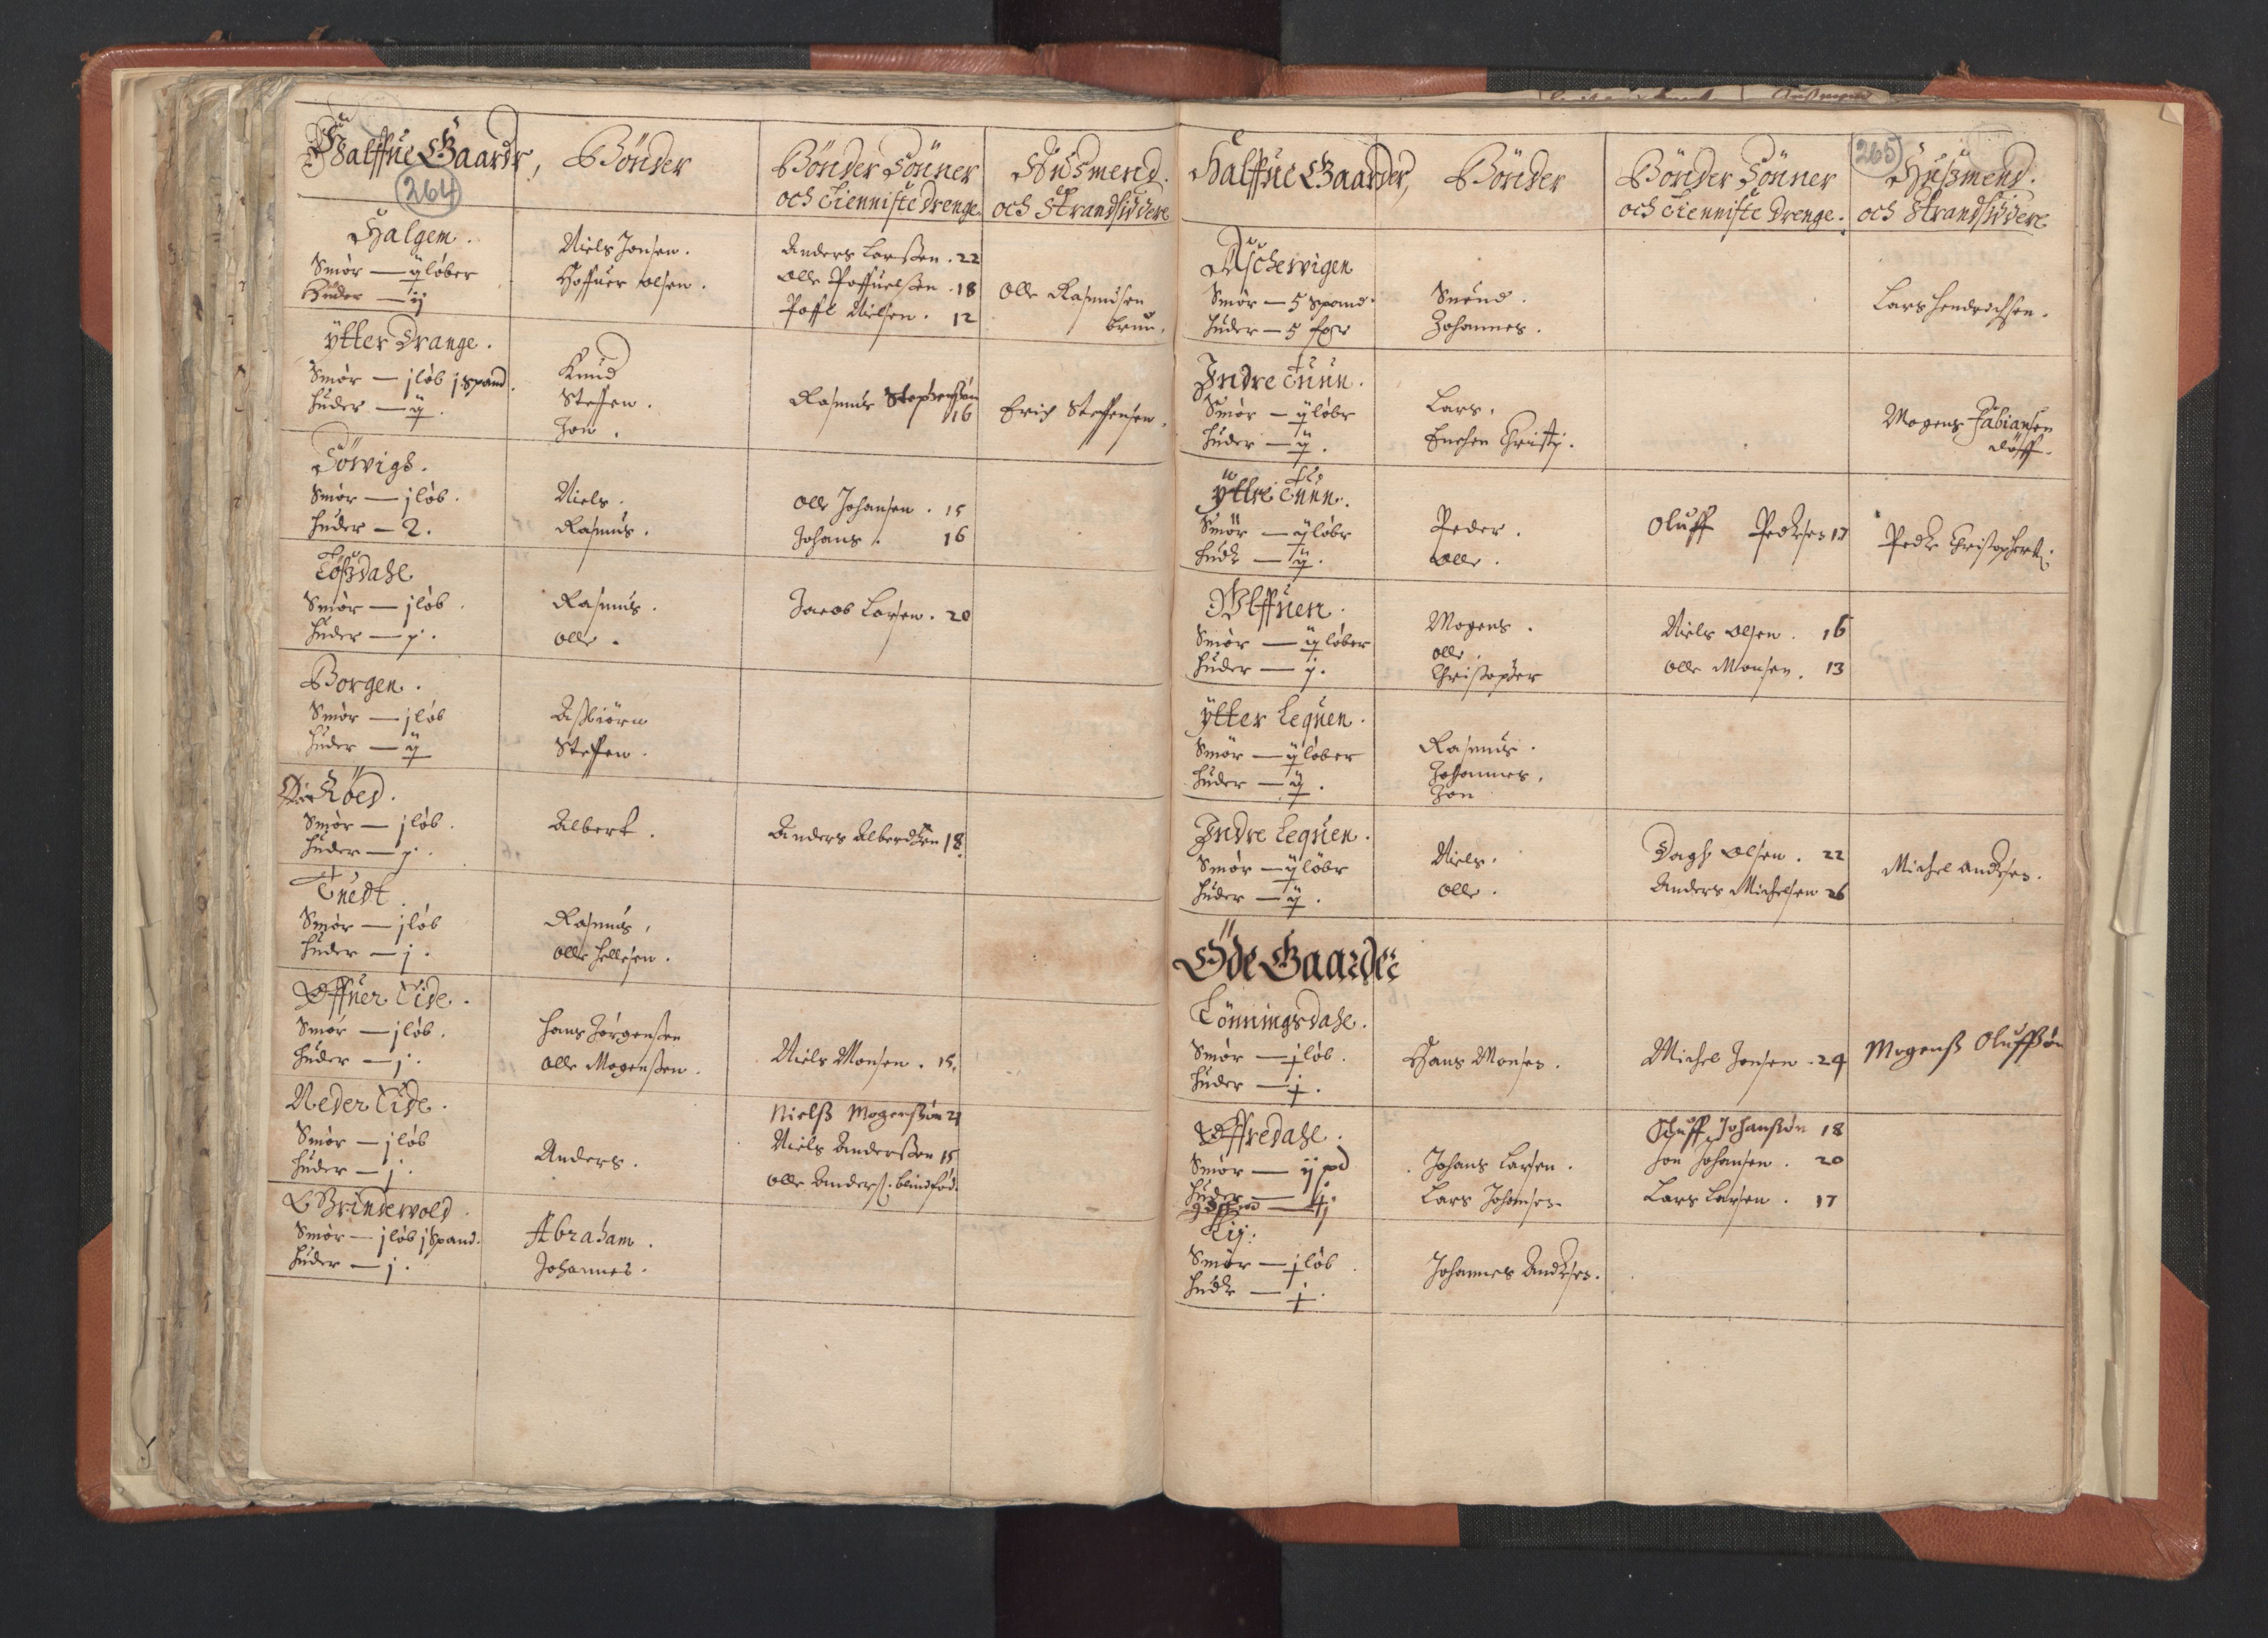 Halffue Gaardr,
Bönder
Bönder Sönner
och Tienniste drenge
Huusmend.
och Strandsiddere
264
Halgem.
Smör — ij löber
Huder — ij
Niels Jonsen.
Hoffuer Olsen.
Anders Larssen. 22
Olle Poffuelssen. 18
Poffl Nielsen. 12
Olle Rasmusen
brun.
ytter Drange.
Smör — j löb j spand.
Huder — ij.
Knud
Steffen.
Jon.
Rasmus Stephenssön
16
Erich Steffensen.
Söwigh.
Smör — j löb.
Huder — 2.
Niels.
Rasmus.
Olle Johansen. 15
Johans. 16
Smör — j löb.
Huder — j.
Rasmus.
Olle.
Jacob Larsen. 20
Borgen.
Smör — j löb
Huder — ij
Asbiörn
Steffen.
Röed.
Smör — j löb.
Huder — j.
Albert.
Anders Alberdtsen 18.
Tuedt.
Smör — j löb
Huder — j.
Rasmus.
Olle Hellesen.
Offuer Lide.
Smör — j löb.
Huder — j.
Hans Jörgenssen
Olle Mogenssen.
Niels Monsen. 15.
Neder Lide.
Smör — j löb
Huder — j.
Anders.
Nielss Mogenssön 21
Niels Anderssen 15
Olle Anderss. blindföd.
Grindewold.
Smör — j löb j Spand.
Huder — j.
Abraham.
Johannes.
Halffue Gaarder,
Bönder
Bönder Sönner
och Tienniste Drenge.
265
Huszmend.
och Strandsiddere
Aschewigen
Smör — 5 spand.
Huder — 5
Suend.
Johannes.
Lars Hendrichsen.
Indre Tuun.
Smör — ij löbr
Huder — ij.
Lars.
Enchen Christj.
Mogens Fabiansen
döff.
yttre Tuun.
Smör — ij löbr
Hudr — ij.
Peder.
Olle.
Oluff Pedersen 17
Peder Christophers.
Ulffuen.
Smör — ij löber
Huder — j.
Mogens.
Olle.
Christopher
Niels Olsen. 16
Olle Monsen. 13
ytter Lequen.
Smör — ij löber
Huder — ij.
Rasmus.
Johannes.
Jon
Indre Lequen.
Smör — ij löbr
Huder — ij.
Niels.
Olle.
Dagh Olsen. 22
Anders Michelsen 26
Michel Andersen.
Öde Gaarder
Lönningsdahl.
Smör — j löb.
Huder — j.
Hans Monsen.
Michel Jonsen. 24
Mogenss Oluffsön
Offredahl.
Smör — ij pd
Huder —
Johans Larsen.
Lars Johansen
Oluff Johanssön 18
Jon Johansen. 20
Lars Larsen. 17
Lij.
Smör — j löb
Hudr — j.
Johannes Andersen.